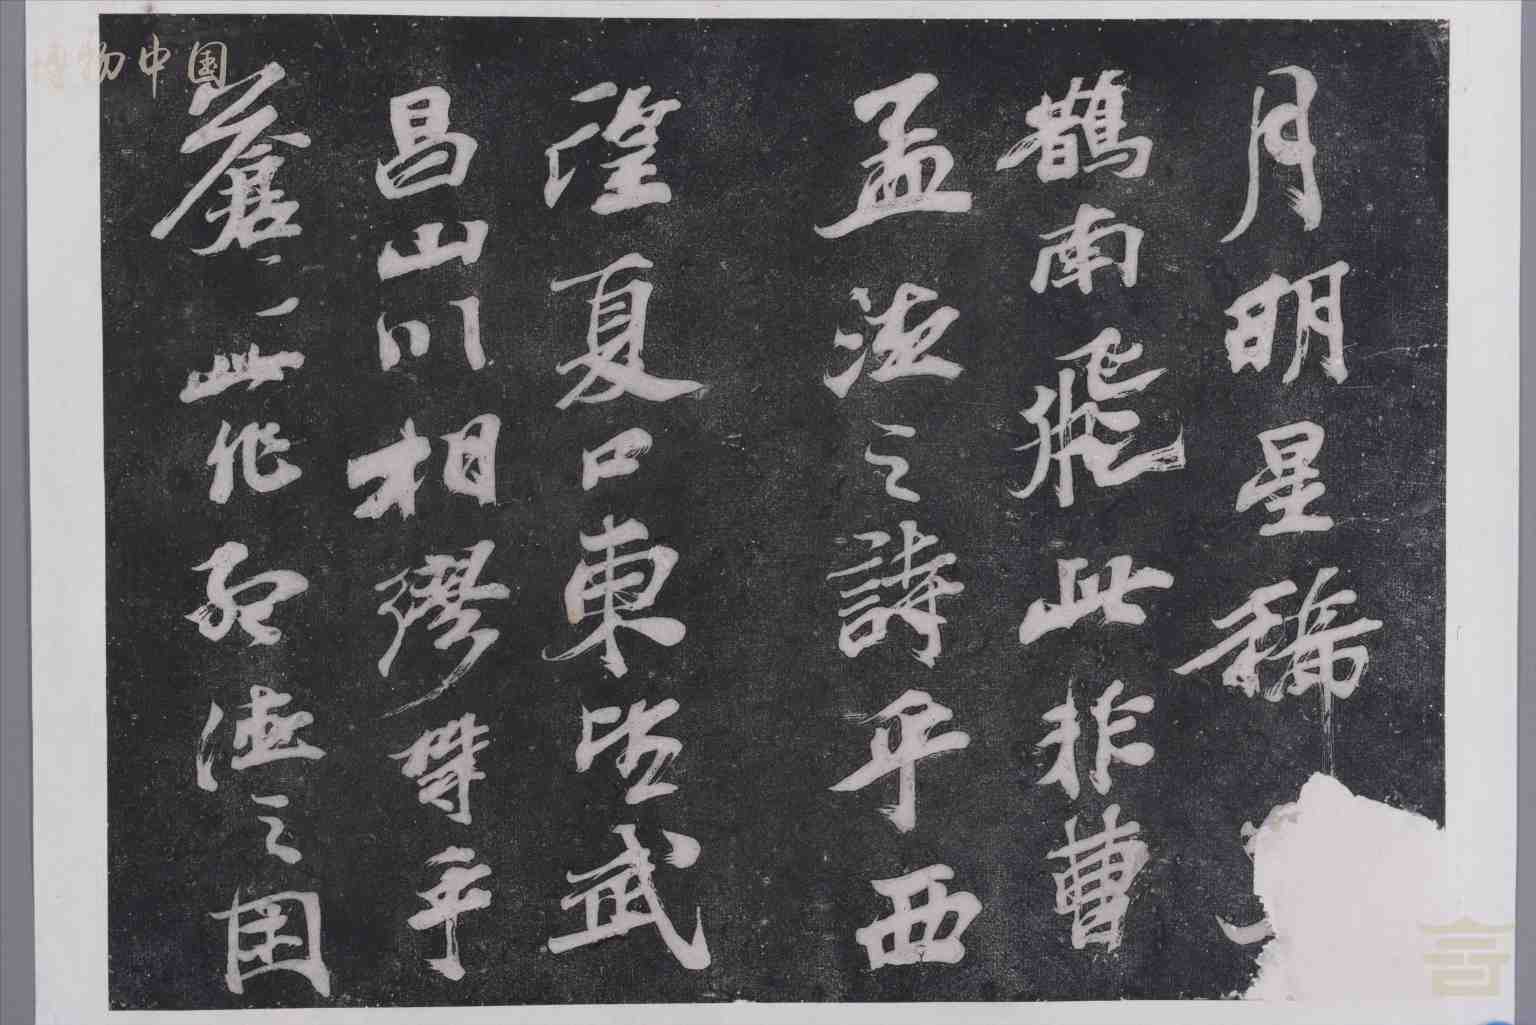 博物中国
月明星稀
鵲南飛此非曹
孟德之詩乎西
望夏口東望武
昌山川相繆鬱乎
蒼〻此非孟德之困